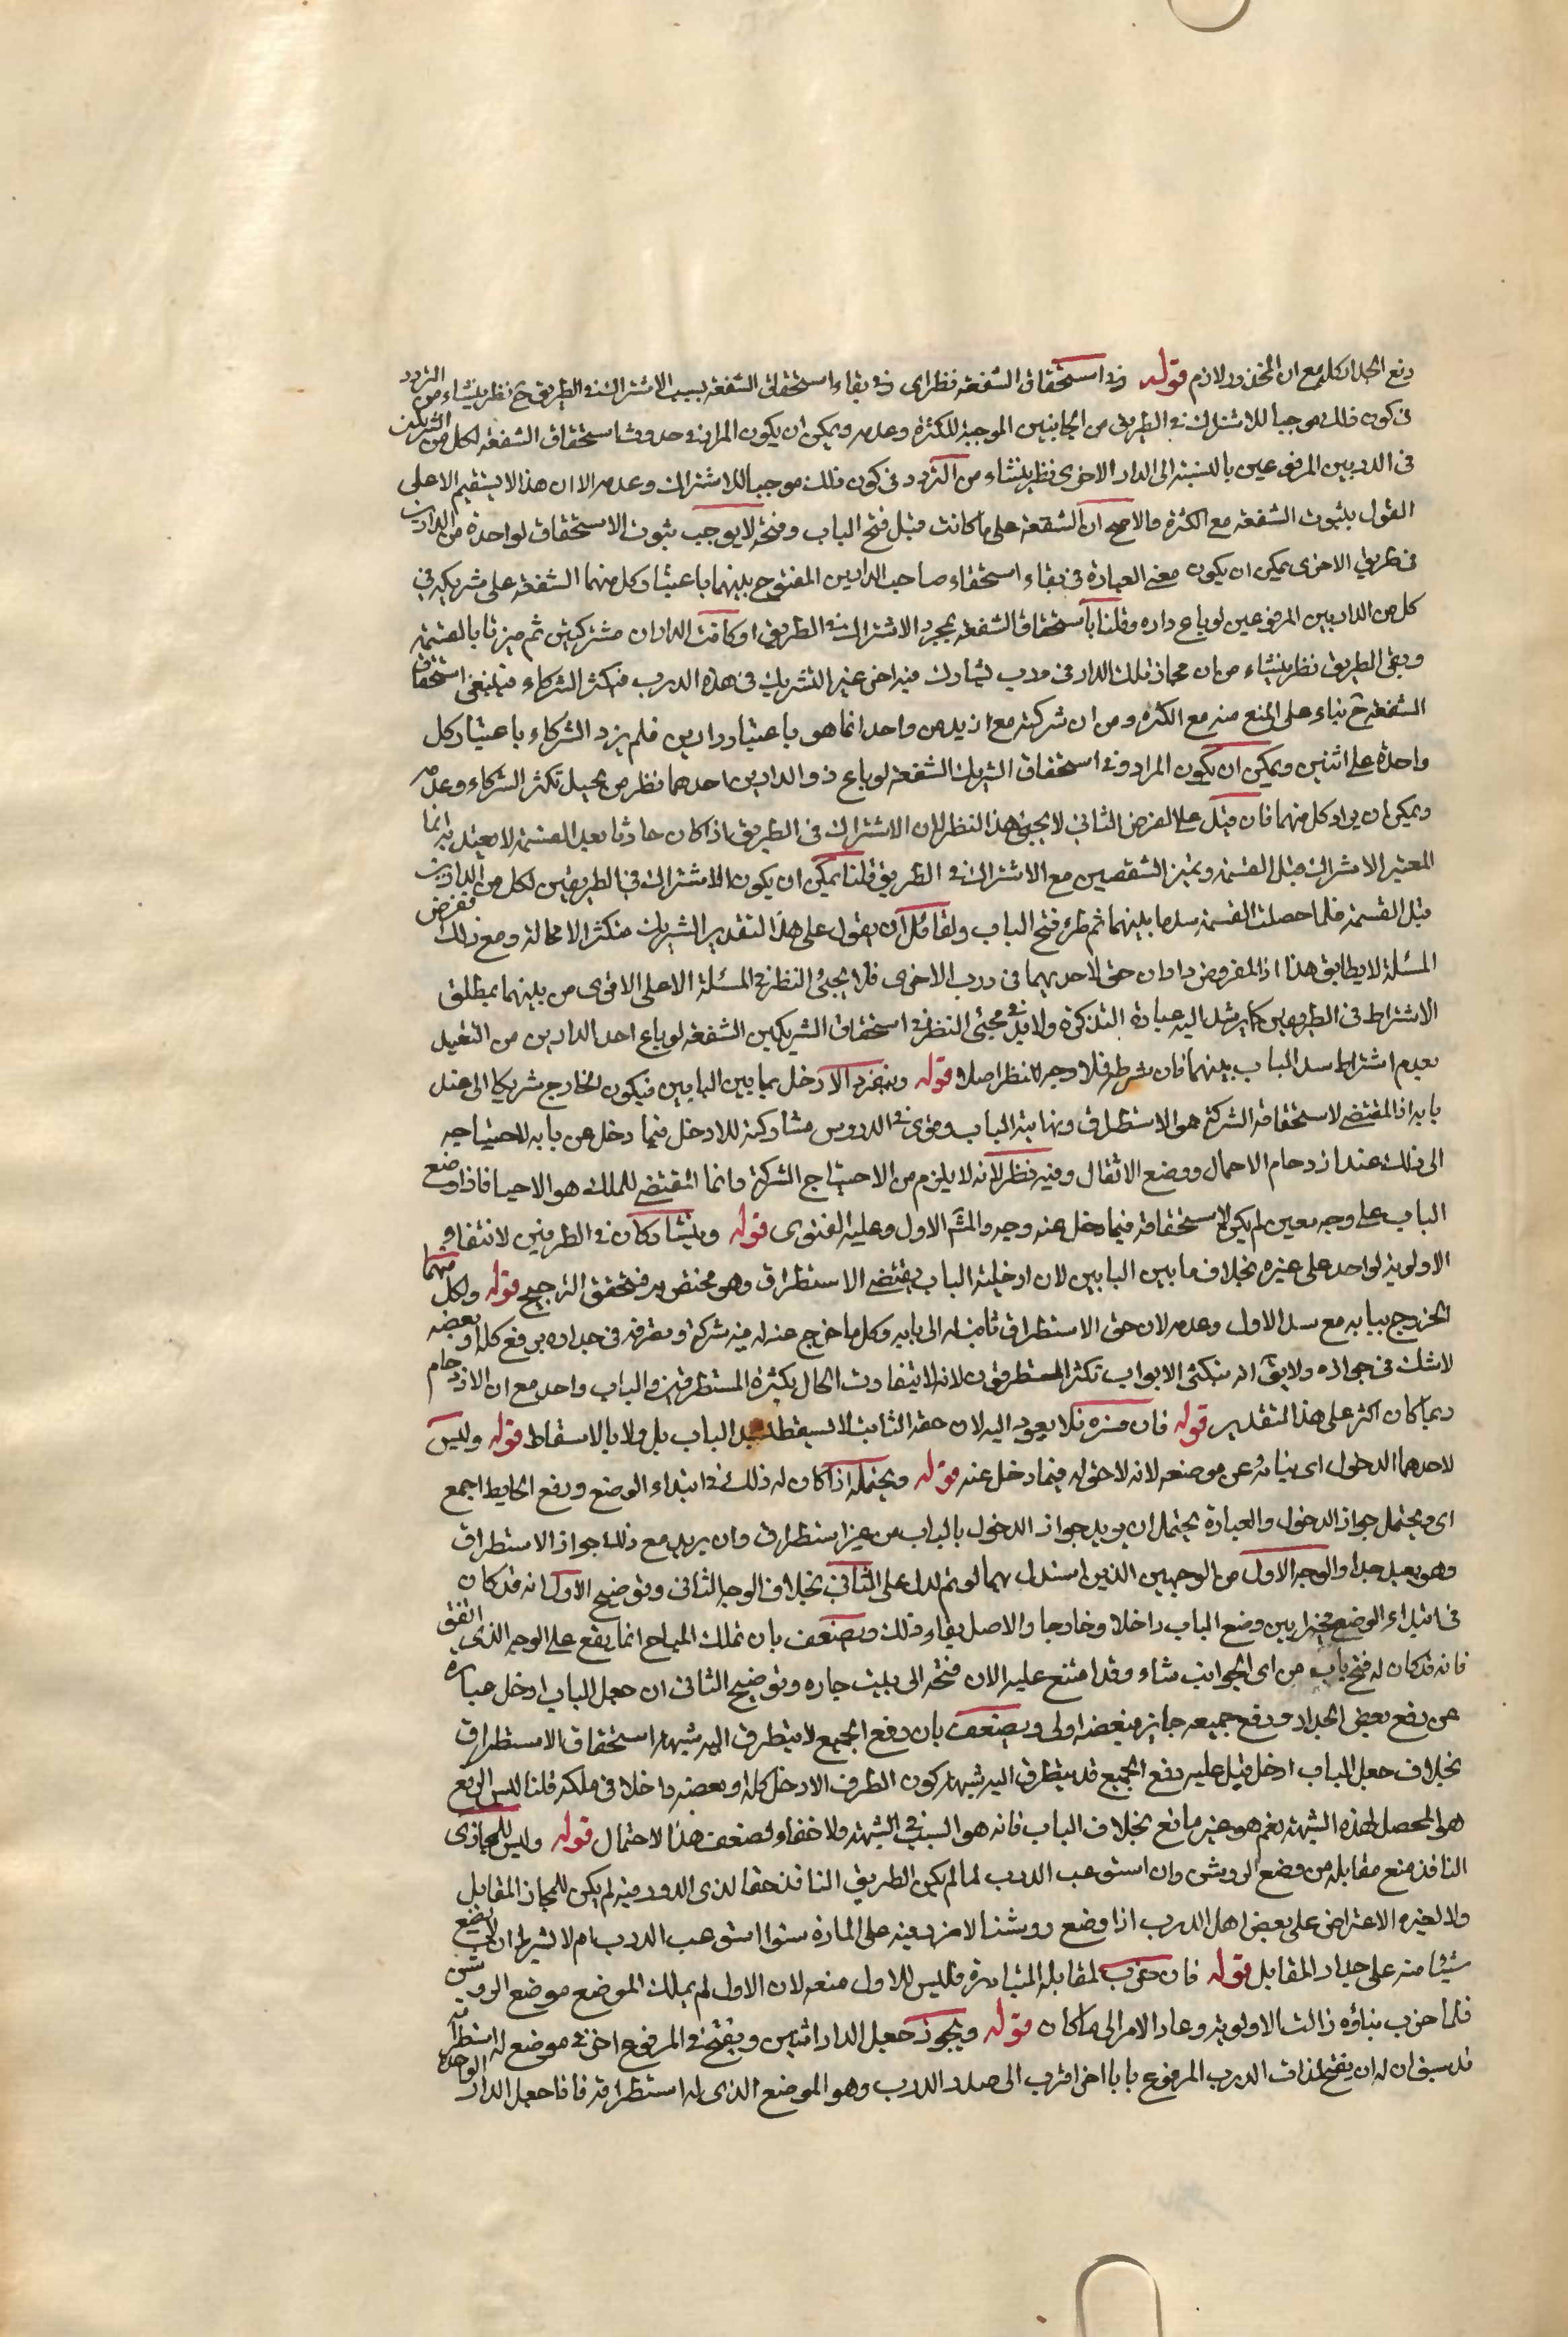 رفع الجدار كله مع ان المحذور لازم قوله وفى استحقاق الشفعة نظر اى فى بقاء استحقاق الشفعة بسبب الاشتراك فى الطريق ح نظر ينشاء من التردد
فى كون ذلك موجبا للاشتراك فى الطريق من الجانبين الموجبة للكثرة وعدمه ويمكن ان يكون المراد فى حدوث استحقاق الشفعة لكل من الشريكين
فى الدربين المرفوعين بالنسبة الى الدار الاخرى نظر ينشاء من التردد فى كون ذلك موجبا للاشتراك وعدمه الا ان هذا لا يستقيم الا على
القول بثبوت الشفعة مع الكثرة والاصح ان الشفعة على ما كانت قبل فتح الباب وفتحه لا يوجب ثبوت الاستحقاق لواحدة من الدارين
فى طريق الاخرى يمكن ان يكون معنى العبارة فى بقاء استحقاق صاحب الدارين المفتوح بينهما باعتبار كل منهما الشفعة على شريكيه فى
كل من الدارين المرفوعين لو باع داره وقلنا باستحقاق الشفعة بمجرد الاشتراك فى الطريق او كانت الداران مشتركتين ثم ميزتا بالقسمة
وبقى الطريق نظر ينشاء من ان مجاز تلك الدار فى درب يشارك فيه اخر غير الشريك فى هذه الدرب فيكثر الشركاء فينبغى استحقاق
الشفعة ح بناء على المنع منه مع الكثرة ومن ان شركته مع ازيد من واحد انما هو باعتبار دارين فلم يزد الشركاء باعتبار كل
واحدة على اثنين ويمكن ان يكون المراد وفى استحقاق الشريك الشفعة لو باع ذو الدارين احدهما نظر من تخيل تكثر الشركاء وعدمه
ويمكن ان يراد كل منهما فان قيل على الفرض الثانى لا يجئ هذا النظر لان الاشتراك فى الطريق اذا كان حادثا بعد القسمة لا يعتد به انما
المعتبر الاشتراك قبل القسمة وتميز الشقصين مع الاشتراك فى الطريق قلنا يمكن ان يكون الاشتراك فى الطريقين لكل من الدارين
قبل القسمة فلما حصلت القسمة سد ما بينهما ثم طرء فتح الباب ولقائل ان يقول على هذا التقدير الشريك متكثر لا محالة ومع ذلك ففرض
المسئلة لا يطابق هذا اذ المفروض داران حق لاحديهما فى درب الاخرى فلا يجئ النظر فى المسئلة الا على الاقوى من بينهما بمطلق
الاشتراط فى الطريقين كما يرشد اليه عبارة التذكرة ولا بد فى مجئ النظر فى استحقاق الشريكين الشفعة لو باع احد الدارين من التقييد
بعدم اشتراط سد الباب بينهما فان شرطه فلا وجه للنظر اصلا قوله وينفرد الادخل بما بين البابين فيكون الخارج شريكا الى عند
بابه اذ المقتضى لاستحقاقه الشركة هو الاستطراق ونهايته الباب وقوى فى الدروس مشاركته للادخل فيما دخل عن بابه لاحتياجه
الى ذلك عند ازدحام الاحمال ووضع الاثقال وفيه نظر لانه لا يلزم من الاحتياج الشركة وانما المقتضى للملك هو الاحيا فاذا وضع
الباب على وجه معين لم يكن لاستحقاقه فيما دخل عنه وجه والمش الاول وعليه الفتوى قوله ويتشاركان فى الطرفين لانتفاء
الاولوية لواحد على غيره بخلاف ما بين البابين لان ادخلية الباب يقتضى الاستطراق وهو مختص به فتحقق الترجيح قوله ولكل منهما
الخروج ببابه مع سد الاول وعدمه لان حق الاستطراق ثابت له الى بابه وكل ما خرج عنه له فيه شركة وتصرفه فى جداره برفع كله او بعضه
لا شك فى جوازه ولا يق انه بتكثر الابواب تكثر المستطرقون لانه لا يتفاوت الحال بكثرة المستطرقين والباب واحد مع ان الازدحام
ربما كان اكثر على هذا التقدير قوله فان سده فلا يعود اليه لان حقه الثابت لا يسقط بسد الباب بل ولا بالاسقاط قوله وليس
لاحدهما الدخول اى ببابه عن موضعه لانه لا حق له فيما دخل عنه قوله ويحتمله اذا كان له ذلك فى ابتداء الوضع ورفع الحايط اجمع
اى ويحتمل جواز الدخول والعبارة يحتمل ان يريد جواز الدخول بالباب من غير استطراق وان يريد مع ذلك جواز الاستطراق
وهو بعيد جدا والوجه الاول من الوجهين الذين استدل بهما لو تم لدل على الثانى بخلاف الوجه الثانى وتوضيح الاول انه قد كان
فى ابتداء الوضع مخيرا بين وضع الباب داخلا وخارجا والاصل بقاء ذلك ويضعف بان تملك المباح انما يقع على الوجه الذى اتفق
فانه قد كان له فتح باب من اى الجوانب شاء وقد امتنع عليه الان فتحه الى بيت جاره وتوضيح الثانى ان جعل الباب ادخل عبارة
عن رفع بعض الجدار ورفع جميعه جايز فبعضه اولى ويضعف بان رفع الجميع لا يتطرق اليه شبهة استحقاق الاستطراق
بخلاف جعل الباب ادخل قيل عليه رفع الجميع قد يتطرق اليه شبهة كون الطرف الادخل كله او بعضه داخلا فى ملكه قلنا ليس الرفع
هو المحصل لهذه الشبهة نعم هو غير مانع بخلاف الباب فانه هو السبب فى الشبهة ولا خفاء لضعف هذا الاحتمال قوله وليس للمحاذى
النافذ منع مقابله من وضع الروشن وان استوعب الدرب لما لم يكن الطريق النافذ حقا لذى الدور فيه لم يكن للمحاذ المقابل
ولا لغيره الاعتراض على بعض اهل الدرب اذا وضع روشنا لا ضرر فيه على المارة سوا استوعب الدرب ام لا بشرط ان لا يضع
شيئا منه على جدار المقابل قوله فان خرب لمقابله المبادرة وليس للاول منعه لان الاول لم يملك الموضع موضع الروشن
فلما خرب بناؤه زالت الاولوية وعاد الامر الى ما كان قوله ويجوز جعل الدار اثنين ويفتح فى المرفوع اخر فى موضع له استطراقه
قد سبق ان له ان يفتح لذات الدرب المرفوع بابا اخر اقرب الى صدر الدرب وهو الموضع الذى له استطراقه فاذا جعل الدار الواحدة